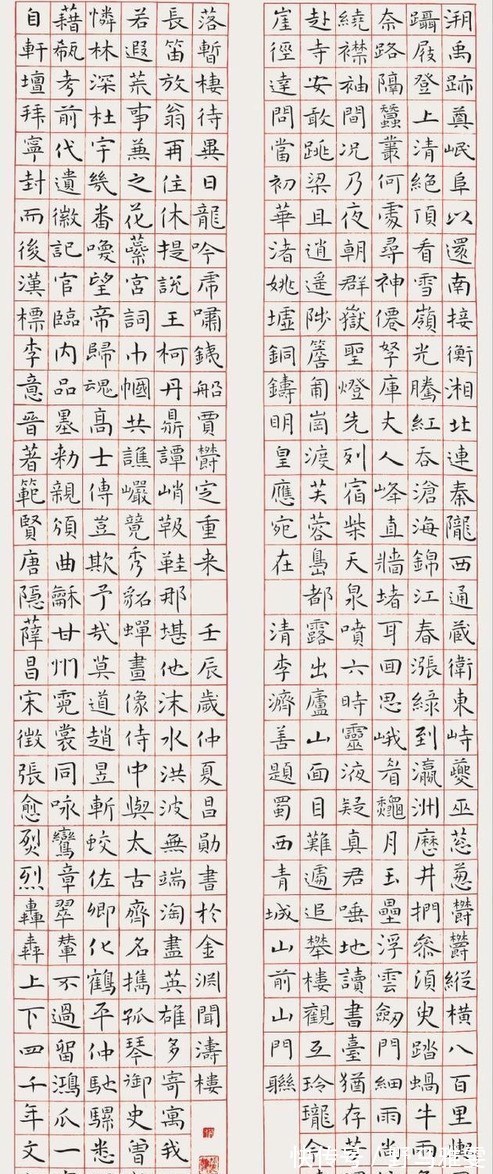 溯禹跡奠岷阜以還南接衡湘北連秦隴西通藏衛東峙夔巫葱葱鬱鬱縱橫八百里
躡屐登上清絕頂看雪嶺光騰紅吞滄海錦江春漲綠到瀛洲歷井捫參須臾踏蝸牛
奈路隔蠶叢何處尋神僊帑庫丈人峰直牆堵耳回思峨眉龝月玉壘浮雲劒門細雨
繞襟袖間况乃夜朝群嶽聖燈先列宿柴天泉噴六時靈液疑真君唾地讀書臺猶存
赴寺安敢跳梁且逍遙陟簷匍崮渡芙蓉島都露出廬山面目難遽追攀樓觀互玲瓏
崖徑達問當初華渚姚墟銅鑄明皇應宛在 清李濟善題蜀西青城山前山門聯
落暫棲待異日龍吟虎嘯銕船賈鬱定重来 壬辰歲仲夏昌勛書於金淵聞濤樓
長笛放翁再住休提說王柯丹鼎譚峭靸鞋那堪他沫水洪波無端淘盡英雄多寄寓我
若遐荒事兼之花蘂宮詞巾幗共譙巖競秀貂蟬畫像侍中與太古齊名攜孤琴御史曾
憐林深杜宇幾番喚望帝歸魂高士傳豈欺予哉莫道趙昱斬蛟佐卿化鶴平仲馳騾悉
藉瓻考前代遺徽記官臨内品墨勅親頒曲龢甘州霓裳同咏鸞章翠輦不過留鴻爪一
自軒壇拜寧封而後漢標李意晉著範賢唐隱薛昌宋徵張愈烈烈轟轟上下四千年文